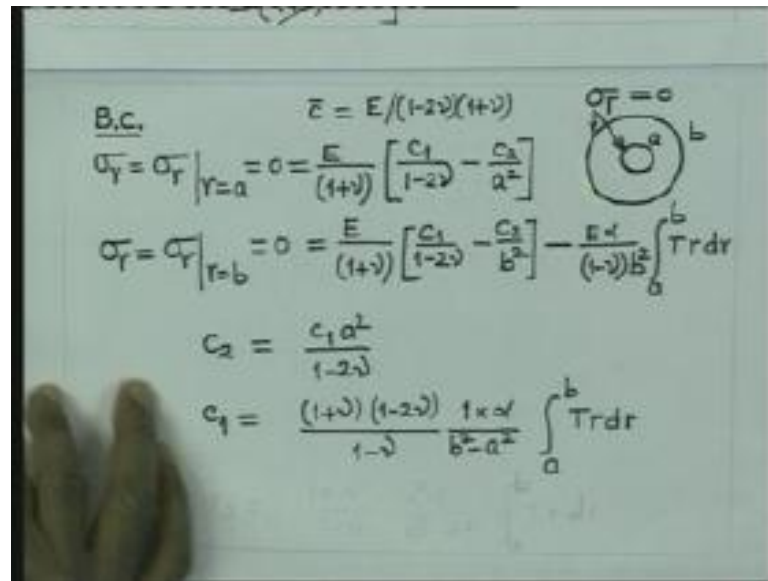 B.C.
c̄ = E/(1-2ν)(1+ν)
σr = 0
a a b
σr = σr|r=a = 0 = E/(1+ν) [C1/1-2ν - C2/a²]
σr = σr|r=b = 0 = E/(1+ν) [C1/1-2ν - C2/b²] - Eα/(1-ν)b² ∫_a^b Trdr
C2 = C1a²/1-2ν
C1 = (1+ν)(1-2ν)/1-ν 1×α/b²-a² ∫_a^b Trdr